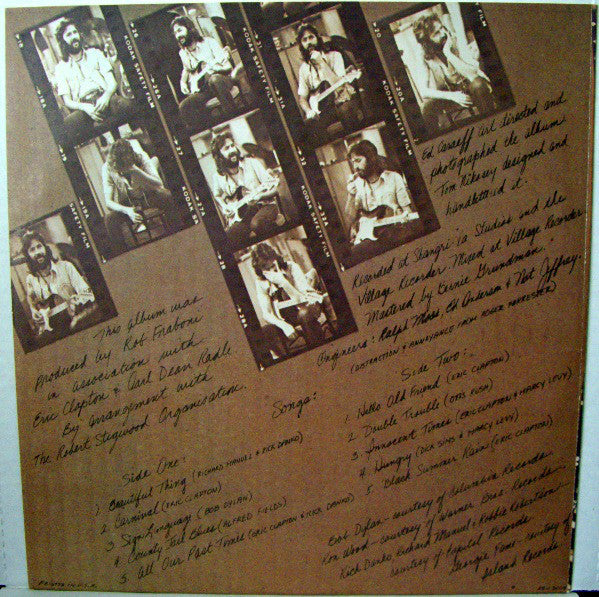 KODAK SAFETY FILM
KODAK SAFETY FILM
SAFETY FILM
Ed Caraeff art directed and
photographed the album
Tom Nikosey designed and
handlettered it.
Recorded at Shangri-la Studios and the
Village Recorder. Mixed at Village Recorder
Mastered by Bernie Grundman.
Engineers: Ralph Moss, Ed Anderson & Nat Jeffrey.
(DISTRACTION & ANNOYANCE FROM ROGER FORRESTER)
This album was
Produced by Rob Fraboni
in association with
Eric Clapton & Carl Dean Radle
By arrangement with
The Robert Stigwood Organisation.
Songs:
Side One:
1. Beautiful Thing (RICHARD MANUEL & RICK DANKO)
2. Carnival (ERIC CLAPTON)
3. Sign Language (BOB DYLAN)
4. County Jail Blues (ALFRED FIELDS)
5. All Our Past Times (ERIC CLAPTON & RICK DANKO)
Side Two:
1. Hello Old Friend (ERIC CLAPTON)
2. Double Trouble (OTIS RUSH)
3. Innocent Times (ERIC CLAPTON & MARCY LEVY)
4. Hungry (DICK SIMS & MARCY LEVY)
5. Black Summer Rain (ERIC CLAPTON)
Bob Dylan - courtesy of Columbia Records
Ron Wood - courtesy of Warner Bros. Records
Rick Danko, Richard Manuel & Robbie Robertson
courtesy of Capitol Records
Georgie Fame - courtesy of
Island Records
PRINTED IN U.S.A.